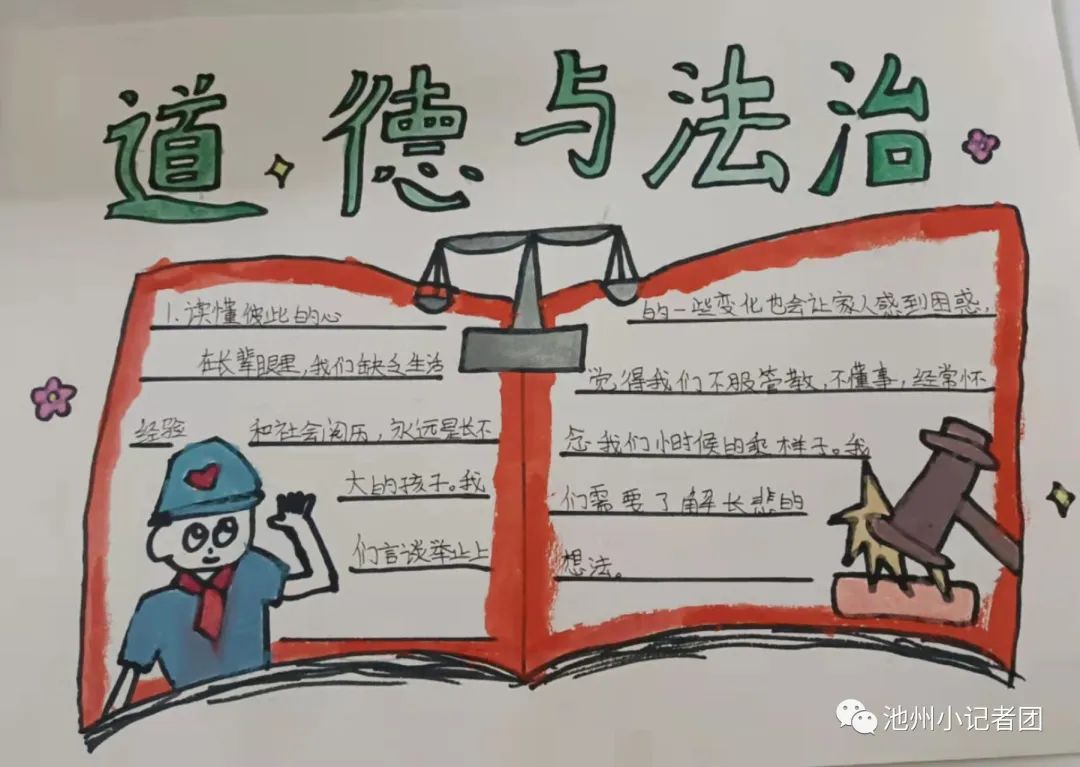 道德与法治
1.读懂彼此的心
在长辈眼里,我们缺乏生活
经验 和社会阅历,永远是长不
大的孩子。我
们言谈举止上
的一些变化也会让家人感到困惑,
觉得我们不服管教,不懂事,经常怀
念我们小时候的乖样子。我
们需要了解长悲的
想法。
池州小记者团